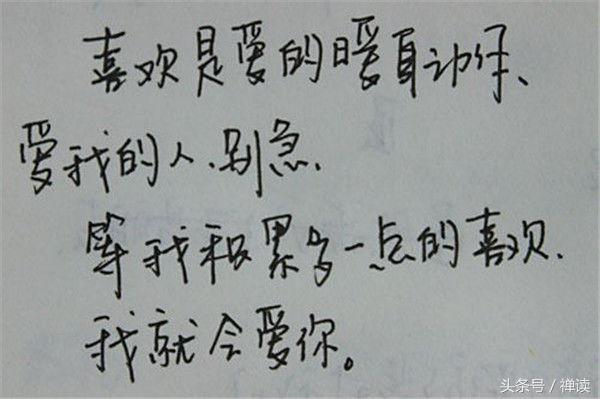 喜欢是爱的暖身动作、
爱我的人.别急.
等我积累多一点的喜欢.
我就会爱你。
头条号/禅读